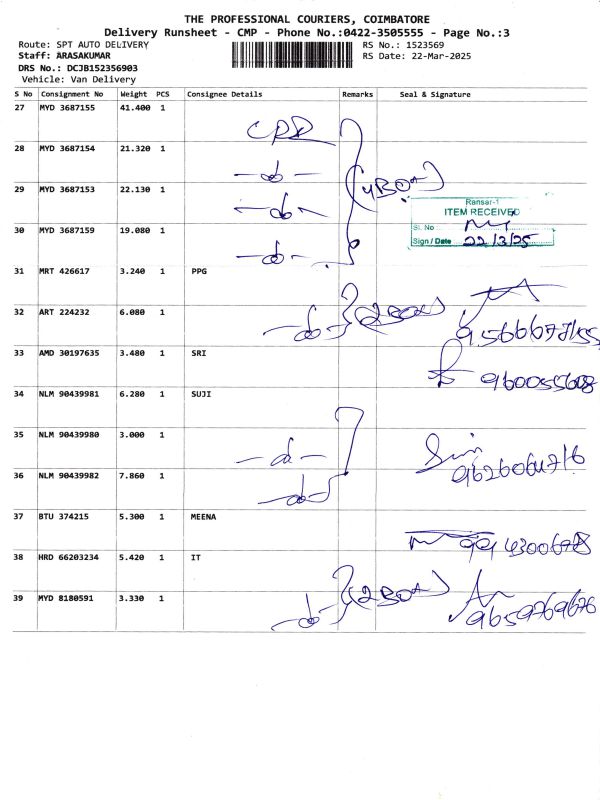 THE PROFESSIONAL COURIERS, COIMBATORE
Delivery Runsheet - CMP - Phone No.:0422-3505555 - Page No.:3
Route: SPT AUTO DELIVERY RS No.: 1523569
Staff: ARASAKUMAR RS Date: 22-Mar-2025
DRS No.: DCJB152356903
Vehicle: Van Delivery
S No Consignment No Weight PCS Consignee Details Remarks Seal & Signature
27 MYD 3687155 41.400 1
28 MYD 3687154 21.320 1
29 MYD 3687153 22.130 1
Ransar-1
ITEM RECEIVED
30 MYD 3687159 19.080 1
Sl. No
Sign / Date 22/3/25
31 MRT 426617 3.240 1 PPG
32 ART 224232 6.080 1
33 AMD 30197635 3.480 1 SRI
34 NLM 90439981 6.280 1 SUJI
35 NLM 90439980 3.000 1
36 NLM 90439982 7.860 1
37 BTU 374215 5.300 1 MEENA
38 HRD 66203234 5.420 1 IT
39 MYD 8180591 3.330 1
9659769676